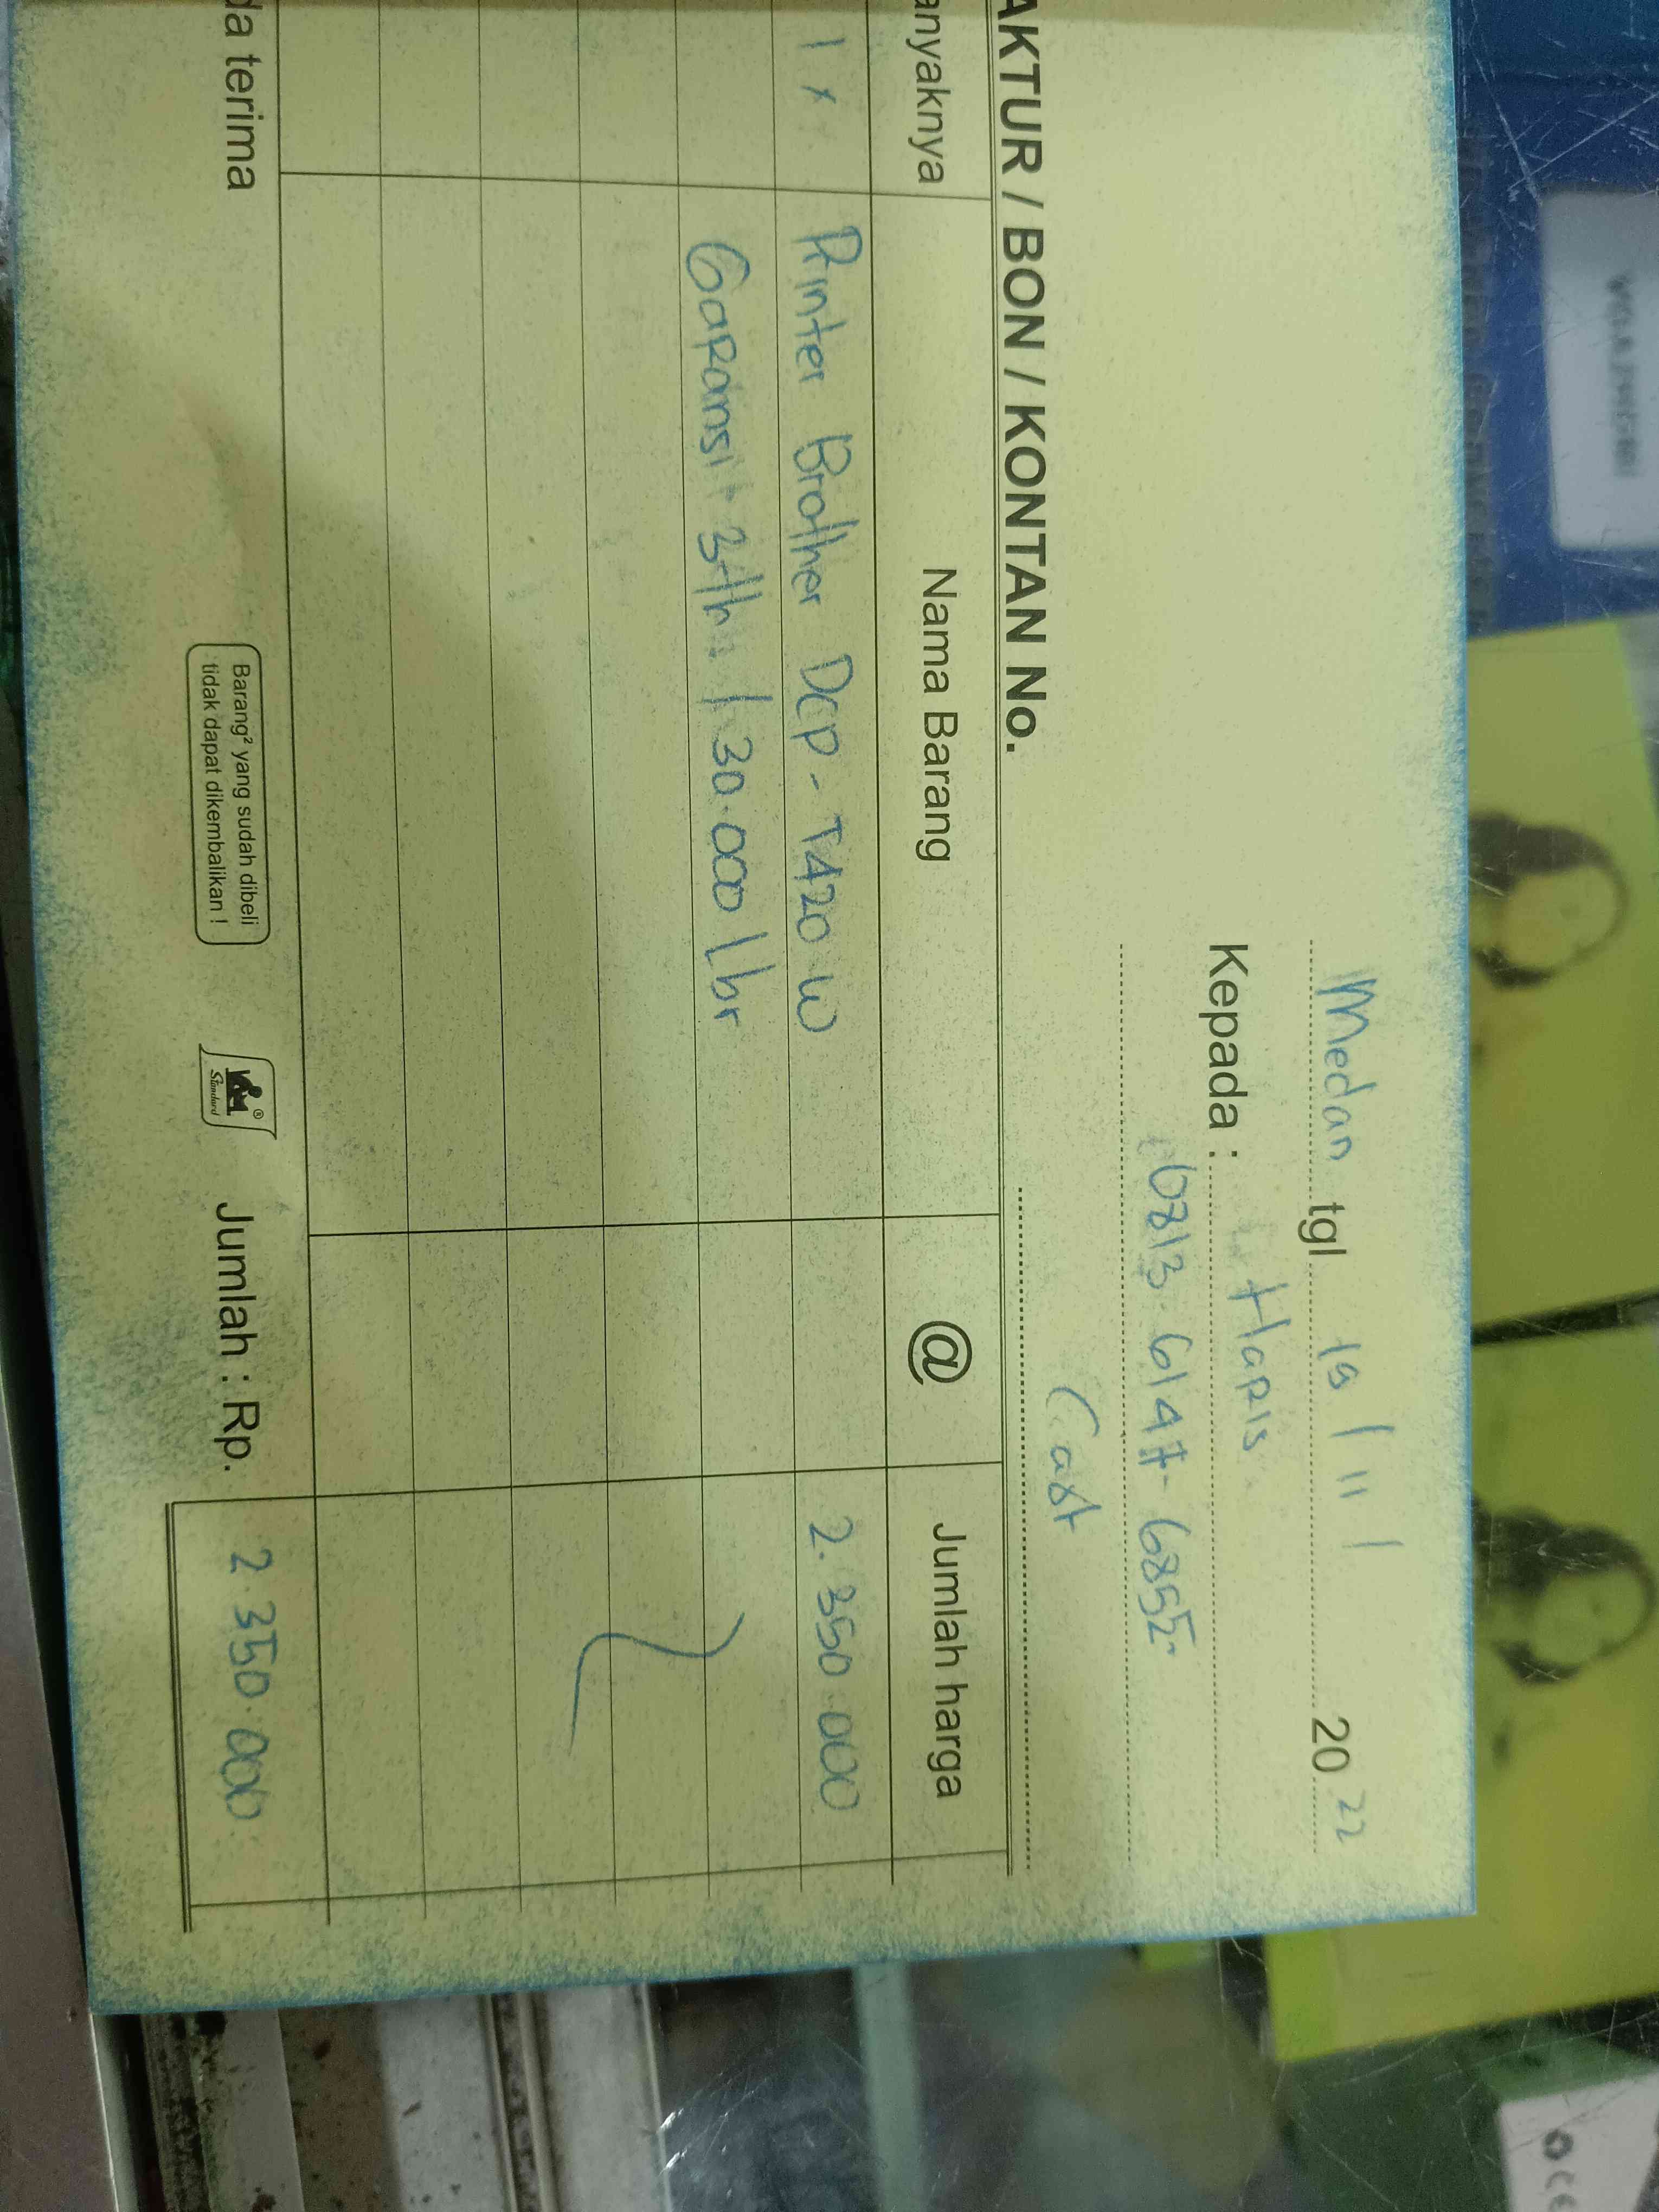 Medan tgl 19 / 11 / 20 22
Kepada : Hapis
0813 6147 6855
Cash
AKTUR / BON / KONTAN No.
anyaknya Nama Barang @ Jumlah harga
1 x Printer Brother DCP - T420 W 2.350.000
Garansi 3 th / 30.000 lbr
da terima
Barang² yang sudah dibeli
tidak dapat dikembalikan !
Standard
Jumlah : Rp. 2.350.000